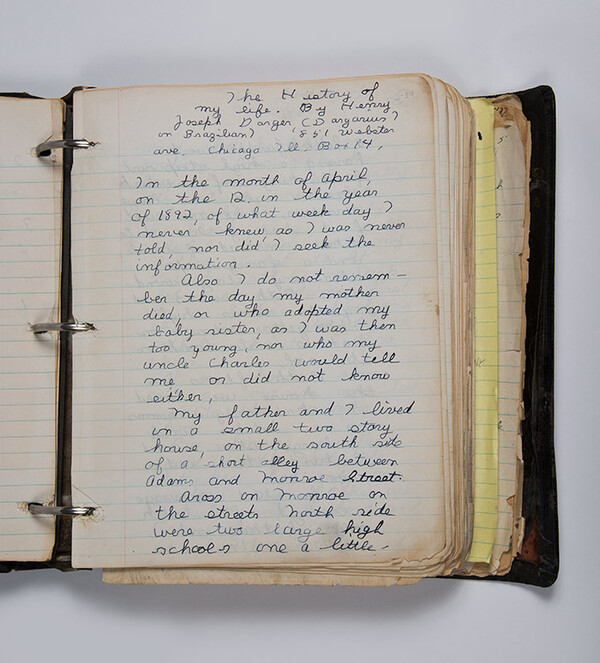 The History of
my life. By Henry
Joseph Darger (Dargarius)
in Brazilian) 851 Webster
ave. Chicago Ill. Box 14,
In the month of April,
on the 12. in the year
of 1892, of what week day I
never knew, as I was never
told, nor did I seek the
information.
Also I do not remem-
ber the day my mother
died, or who adopted my
baby sister, as I was then
too young, nor who my
uncle Charles would tell
me or did not know
either,
My father and I lived
in a small two story
house, on the south side
of a short alley between
Adams and Monroe Street.
Aross on Monroe on
the streets north side
were two large high
schools one a little-